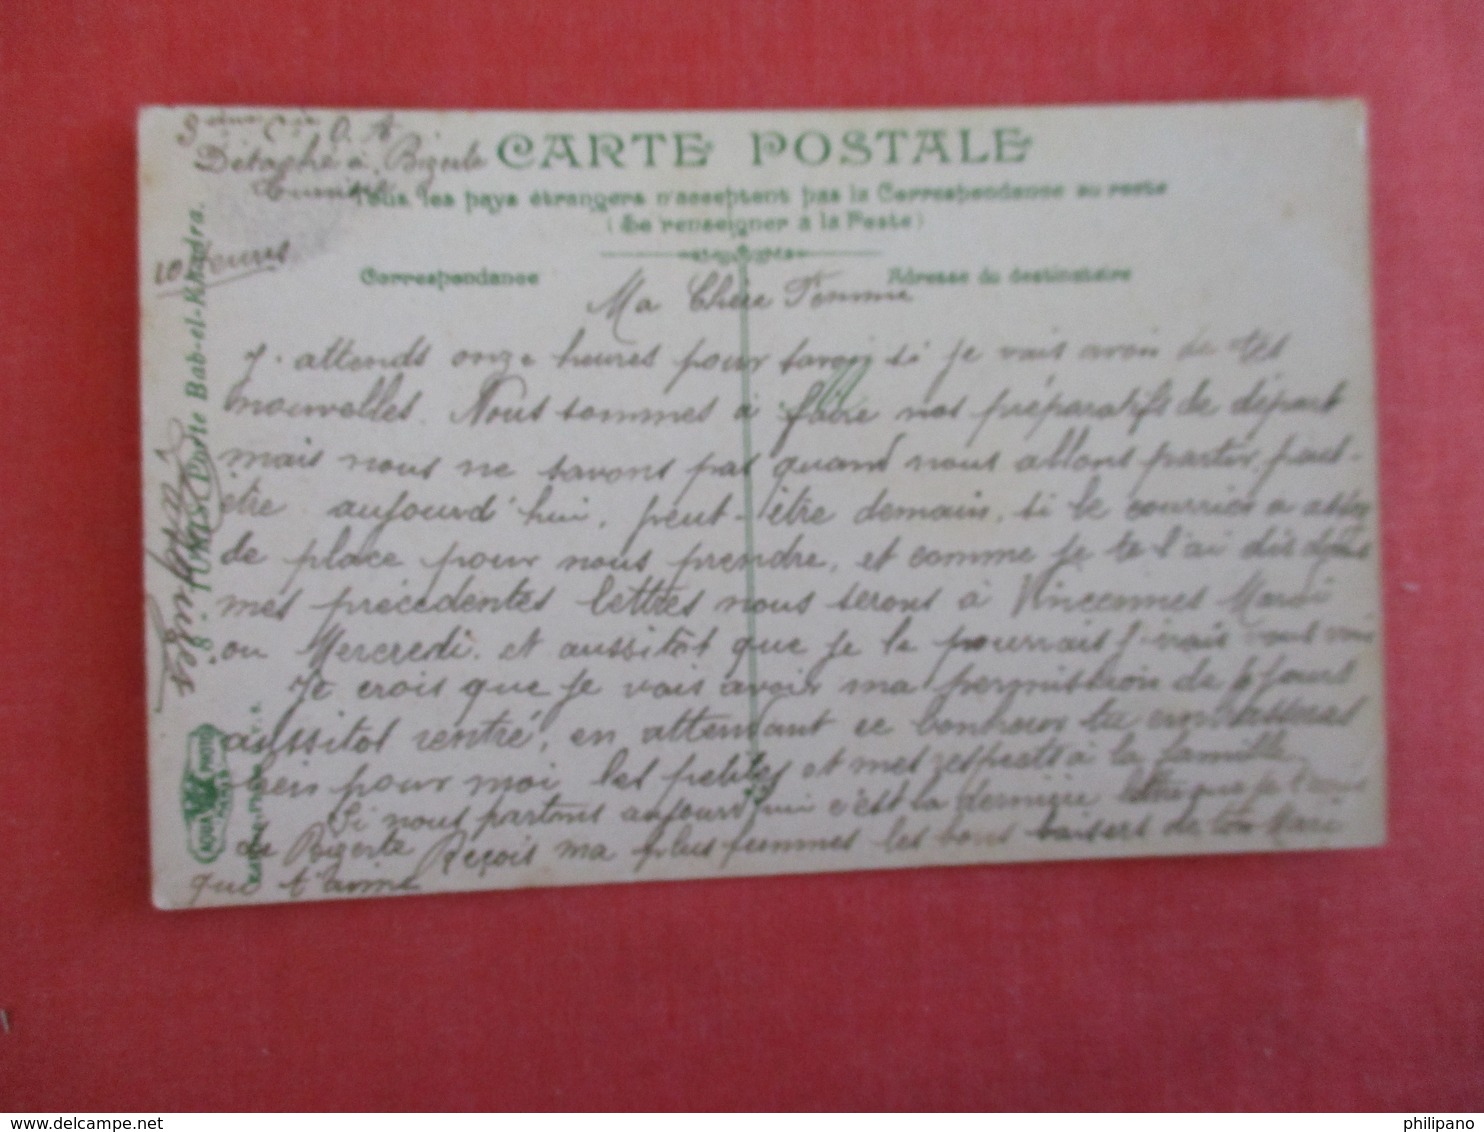 3ème Cie O. A
Détaché à Bizerte
Tunisie
CARTE POSTALE
Tous les pays étrangers n'acceptent pas la Correspondance au recto
(Se renseigner à la Poste)
10 heures
Correspondance
Adresse du destinataire
Ma Chere Femme
J. attends onze heures pour savoir si je vais avoir de tes
nouvelles. Nous sommes à faire nos préparatifs de départ
mais nous ne savons pas quand nous allons partir, peut-
être aujourd'hui, peut-être demain, si le courrier a assez
de place pour nous prendre, et comme je te l'ai dis dans
mes précédentes lettres nous serons à Vincennes Mardi
ou Mercredi. et aussitôt que je le pourrais j'irais vous voir
Je crois que je vais avoir ma permission de jours
aussitot rentré, en attendant ce bonheur tu embrasseras
bein pour moi les petites et mes respects à la famille
Si nous partons aujourd'hui c'est la dernière lettre que je t'
de Bizerte Reçois ma plus femmes les bons baisers de ton Mari
que t'aime
8 - TUNIS - Porte Bab-el-Khadra.
AQUA PHOTO
PARIS